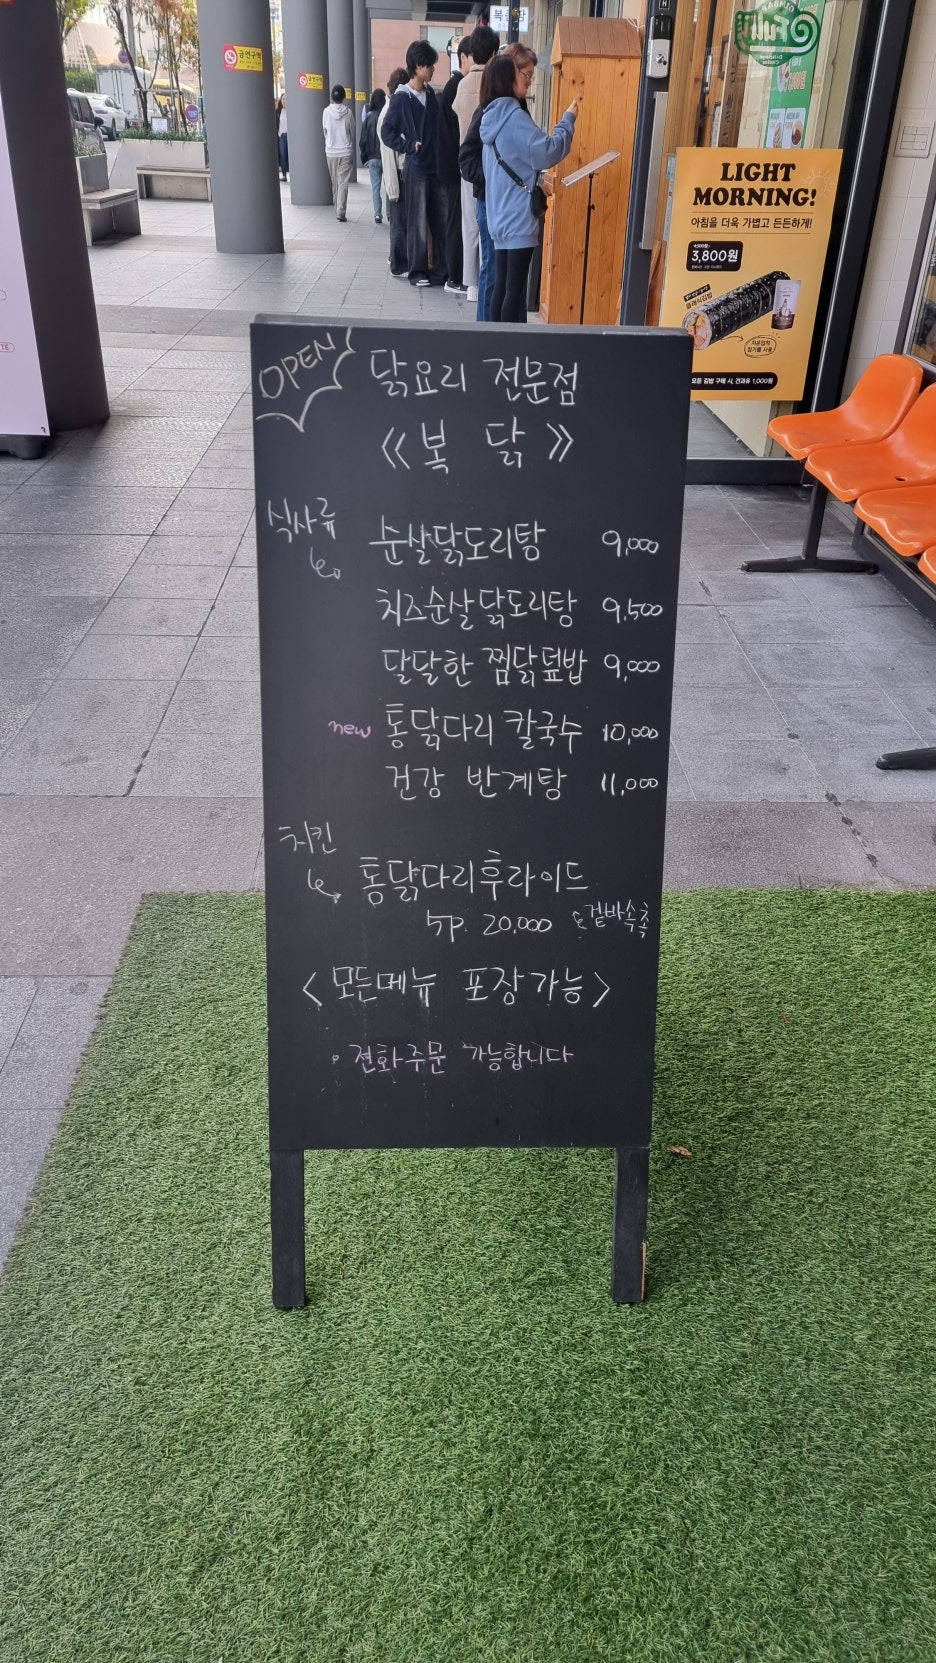 금연구역
금연구역
LIGHT
MORNING!
아침을 더욱 가볍고 든든하게!
3,800원
클래식김밥
저온압착
참기름 사용
모든 김밥 구매 시, 견과유 1,000원
OPEN
닭요리 전문점
《복 닭》
식사류
순살닭도리탕 9,000
치즈순살닭도리탕 9,500
달달한 찜닭덮밥 9,000
new 통닭다리 칼국수 10,000
건강 반계탕 11,000
치킨
통닭다리후라이드
5p. 20,000 겉바속촉
<모든메뉴 포장가능>
• 전화주문 가능합니다